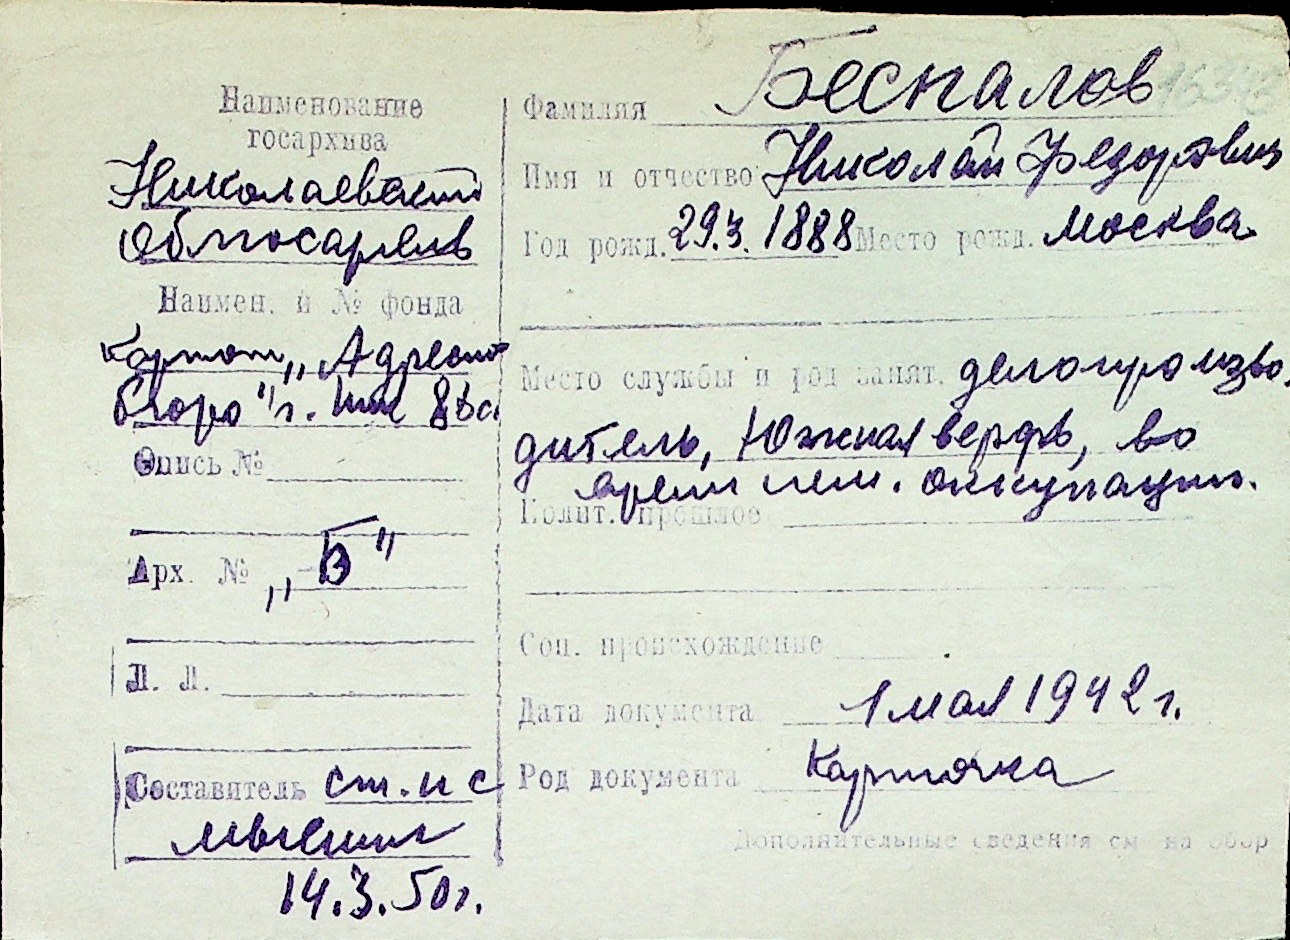 Наименование
госархива
Николаевский
Облгосархив
Наимен. и № фонда
Картот. „Адресное
бюро" г.
Опись №
Арх. № „Б"
Л. Л.
Составитель ст. н с
14.3.50г.
16343
Фамилия Беспалов
Имя и отчество Николай Федорович
Год рожд. 29.3.1888 Место рожд. Москва
Место службы и род занят. делопроизво-
дитель, Южная верфь, во
время нем. оккупации.
Полит. прошлое
Соц. происхождение
Дата документа 1 мая 1942 г.
Род документа Карточка
Дополнительные сведения см на обор